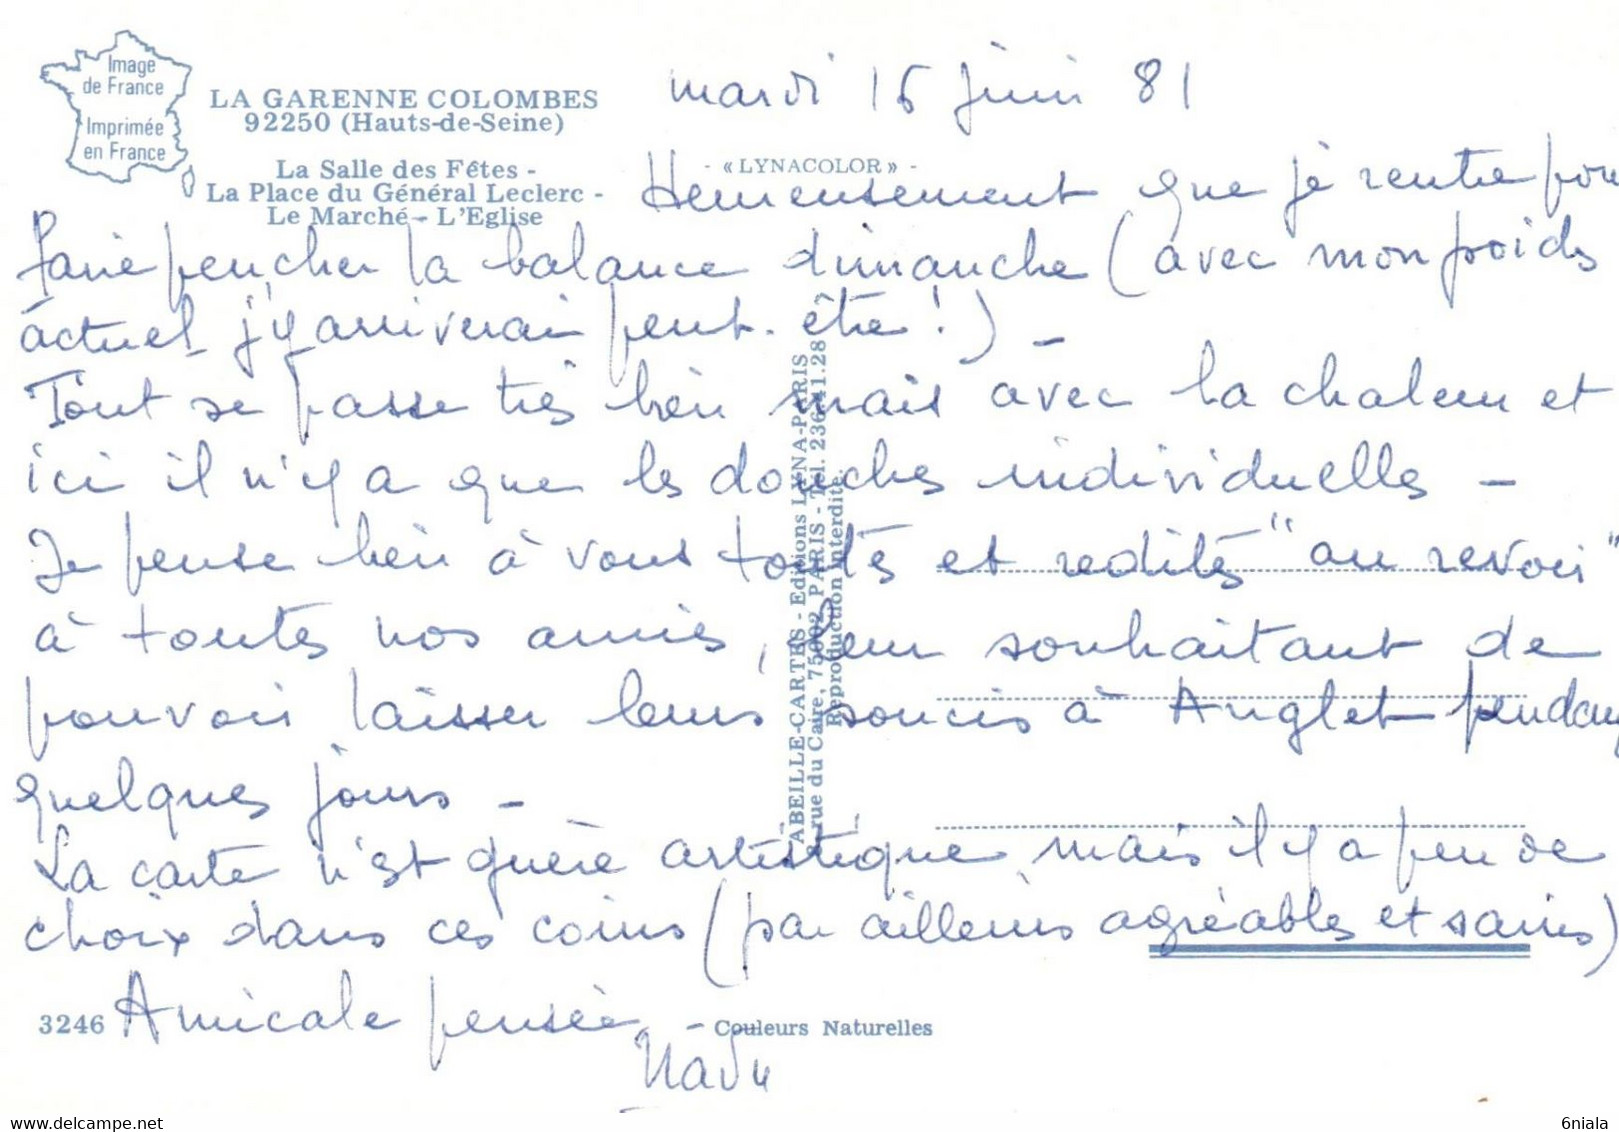 Image
de France
Imprimée
en France
LA GARENNE COLOMBES
92250 (Hauts-de-Seine)
La Salle des Fêtes -
La Place du Général Leclerc -
Le Marché - L'Eglise
- « LYNACOLOR » -
mardi 16 juin 81
Heureusement que je rentre pour
faire pencher la balance dimanche (avec mon poids
actuel j'y arriverai peut-être !) -
Tout se passe très bien mais avec la chaleur et
ici il n'y a que les douches individuelles -
Je pense bien à vous toutes et redites "au revoir"
à toutes nos amies, leur souhaitant de
pouvoir laisser leurs soucis à Anglet pendant
quelques jours -
La carte n'est guère artistique mais il y a peu de
choix dans ces coins (par ailleurs agréables et sains)
Amicale pensée
ABEILLE-CARTES - Editions LYNA-PARIS
rue du Caire, 75002 PARIS - Tél. 236.41.28
Reproduction interdite.
3246
- Couleurs Naturelles
delcampe.net
6niala